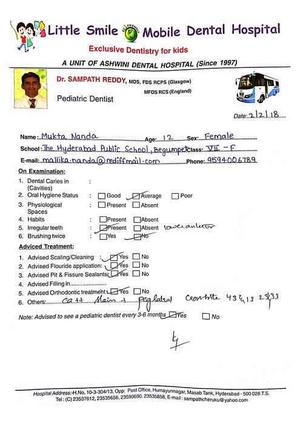 Little Smile Mobile Dental Hospital
Exclusive Dentistry for kids
A UNIT OF ASHWINI DENTAL HOSPITAL (Since 1997)
Dr. SAMPATH REDDY, MDS, FDS RCPS (Glasgow)
MFDS RCS (England)
Pediatric Dentist
Date: 2/2/18
Name: Mukta Nanda Age: 12 Sex: Female
School: The Hyderabad Public School, Begumpet Class: VII - F
E-mail: mallika.nanda@rediffmail.com Phone: 9594006789
On Examination:
1. Dental Caries in (Cavities) :
2. Oral Hygiene Status : Good Average Poor
3. Physiological Spaces : Present Absent
4. Habits : Present Absent
5. Irregular teeth : Present Absent
6. Brushing twice : Yes No
Adviced Treatment:
1. Advised Scaling/Cleaning : Yes No
2. Advised Flouride application: Yes No
3. Advised Pit & Fissure Sealants: Yes No
4. Advised Filling in
5. Advised Orthodontic treatment: Yes No
6. Others:
Note: Advised to see a pediatric dentist every 3-6 months Yes No
Hospital Address: H.No. 10-3-304/13, Opp: Post Office, Humayunnagar, Masab Tank, Hyderabad - 500 028 T.S.
Tel: (C) 23507612, 23535656, 23590690, 23535858, E-mail: sampathcheruku@yahoo.com